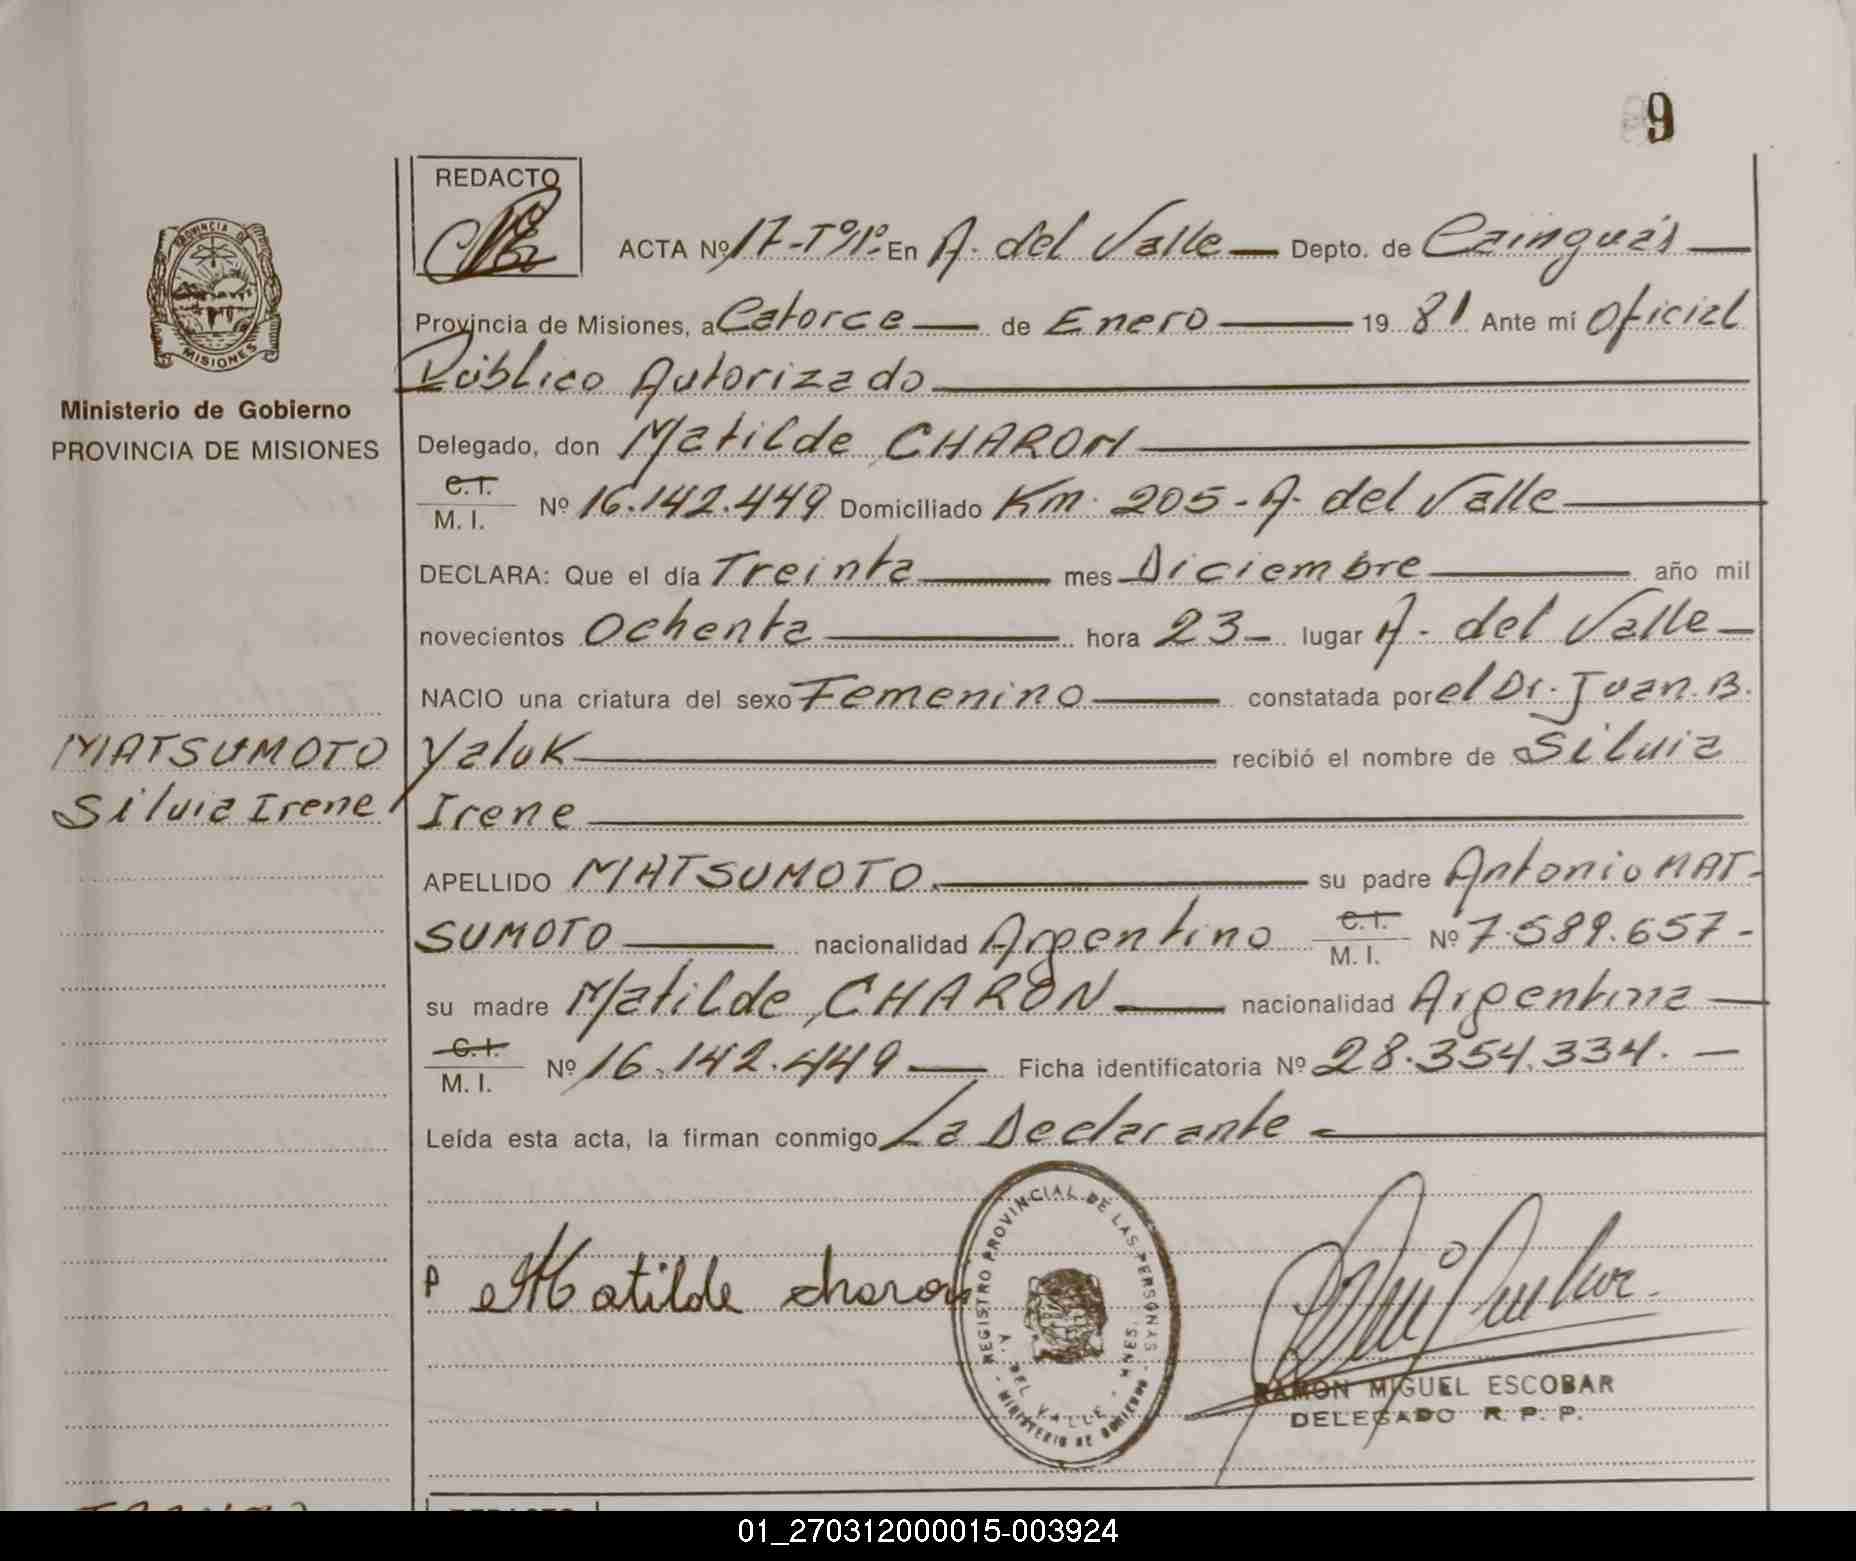 9
REDACTO
ACTA Nº 17-Tº1º- En A. del Valle — Depto. de Cainguás —
PROVINCIA DE
MISIONES
Provincia de Misiones, a Catorce — de Enero — 19 81 Ante mí Oficial
Público Autorizado —
Ministerio de Gobierno
PROVINCIA DE MISIONES
Delegado, don Matilde CHARON —
C.I.
M. I. Nº 16.142.449 Domiciliado Km. 205 - A. del Valle —
DECLARA: Que el día Treinta — mes Diciembre — año mil
novecientos Ochenta — hora 23 — lugar A. del Valle —
NACIO una criatura del sexo Femenino — constatada por el Dr. Juan B.
MATSUMOTO
Silvia Irene
Yaluk — recibió el nombre de Silvia
Irene —
APELLIDO MATSUMOTO — su padre Antonio MAT-
SUMOTO — nacionalidad Argentino C.I. M. I. Nº 7.589.657 -
su madre Matilde CHARON — nacionalidad Argentina —
C.I.
M. I. Nº 16.142.449 — Ficha identificatoria Nº 28.354.334. —
Leída esta acta, la firman conmigo La Declarante —
P Matilde charon
REGISTRO PROVINCIAL DE LAS PERSONAS
A. DEL VALLE - MNES.
- MINISTERIO DE GOBIERNO -
RAMON MIGUEL ESCOBAR
DELEGADO R. P. P.
REDACTO
01_270312000015-003924